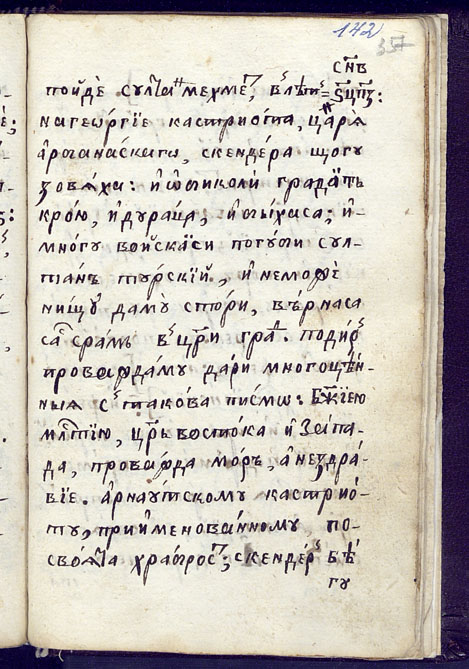 142
357
сн҃в
пойдѐ сул҃та мехме҇т, в лѣ҇т ҂ѕ҃цп҃з:
на геѡ́ргїе кастрио́та, ца́рѧ
а́рбанаскаго, скенде́ра щогу
зовѧ́ха: и҆ ѿтиколѝ градатъ
кро́ю, и҆ дура́ца, и҆ ты́хиса; и҆
мно́гу войска̀си погуби сул-
та́нъ ту́рскїй, и҆ немоѡ҆є
нищу̀ даму̀ стори, ве́рнаса
са сра́мь в цр҃и гра҇д. поди́р
провѡди́аму да́ри многоцѣ́н-
ныѧ с такова писмо̀: бж҃їею
мл҇тїю, цр҃ь восто́ка и҆ за́па-
да, провѡ́жда мо́ръ, а́ нездра́-
вїе. а́рнаутскому кастрио́-
ту, прии҆менова́нному по-
своѧ́та хра́брос҇т, скенде́р бѣ́-
гу